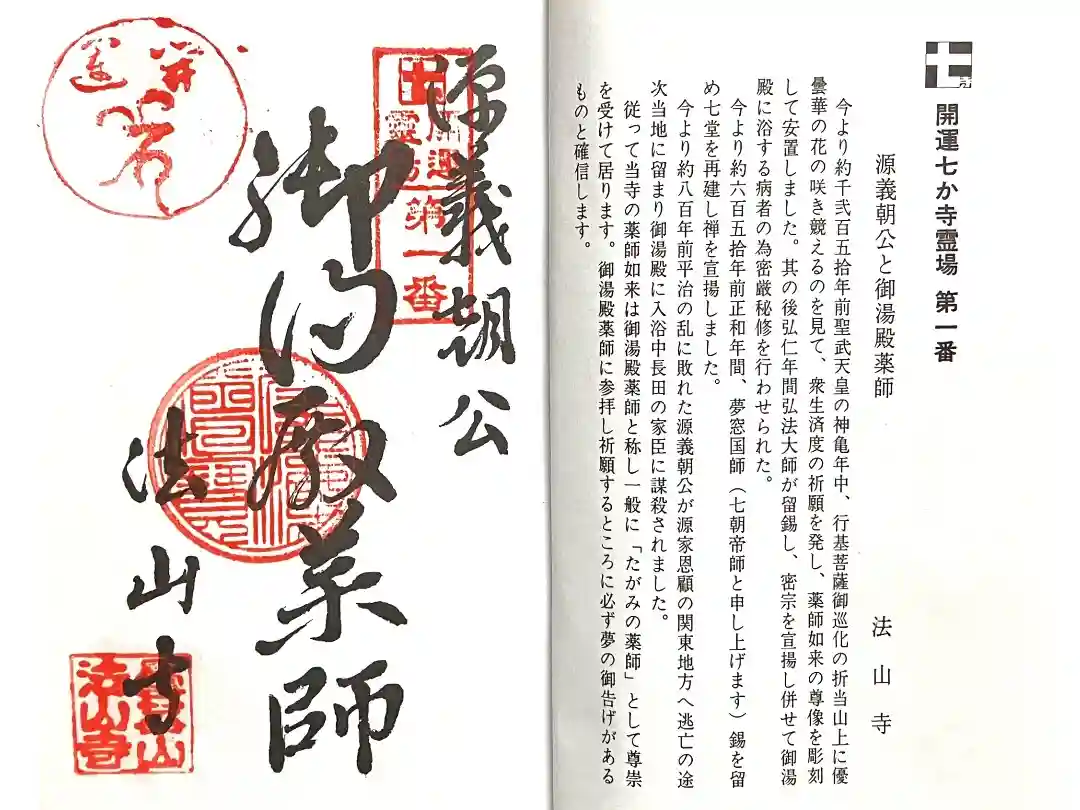 開運七か寺霊場 第一番
源義朝公と御湯殿薬師
法山寺
今より約千弐百五拾年前聖武天皇の神亀年中、行基菩薩御巡化の折当山上に優
曇華の花の咲き競えるのを見て、衆生済度の祈願を発し、薬師如来の尊像を彫刻
して安置しました。其の後弘仁年間弘法大師が留錫し、密宗を宣揚し併せて御湯
殿に浴する病者の為密厳秘修を行わせられた。
今より約六百五拾年前正和年間、夢窓国師（七朝帝師と申し上げます）錫を留
め七堂を再建し禅を宣揚しました。
今より約八百年前平治の乱に敗れた源義朝公が源家恩顧の関東地方へ逃亡の途
次当地に留まり御湯殿に入浴中長田の家臣に謀殺されました。
従って当寺の薬師如来は御湯殿薬師と称し一般に「たがみの薬師」として尊崇
を受けて居ります。御湯殿薬師に参拝し祈願するところに必ず夢の御告げがある
ものと確信します。
源義朝公
開運
霊場
第一番
御湯殿薬師
法山寺
法山寺